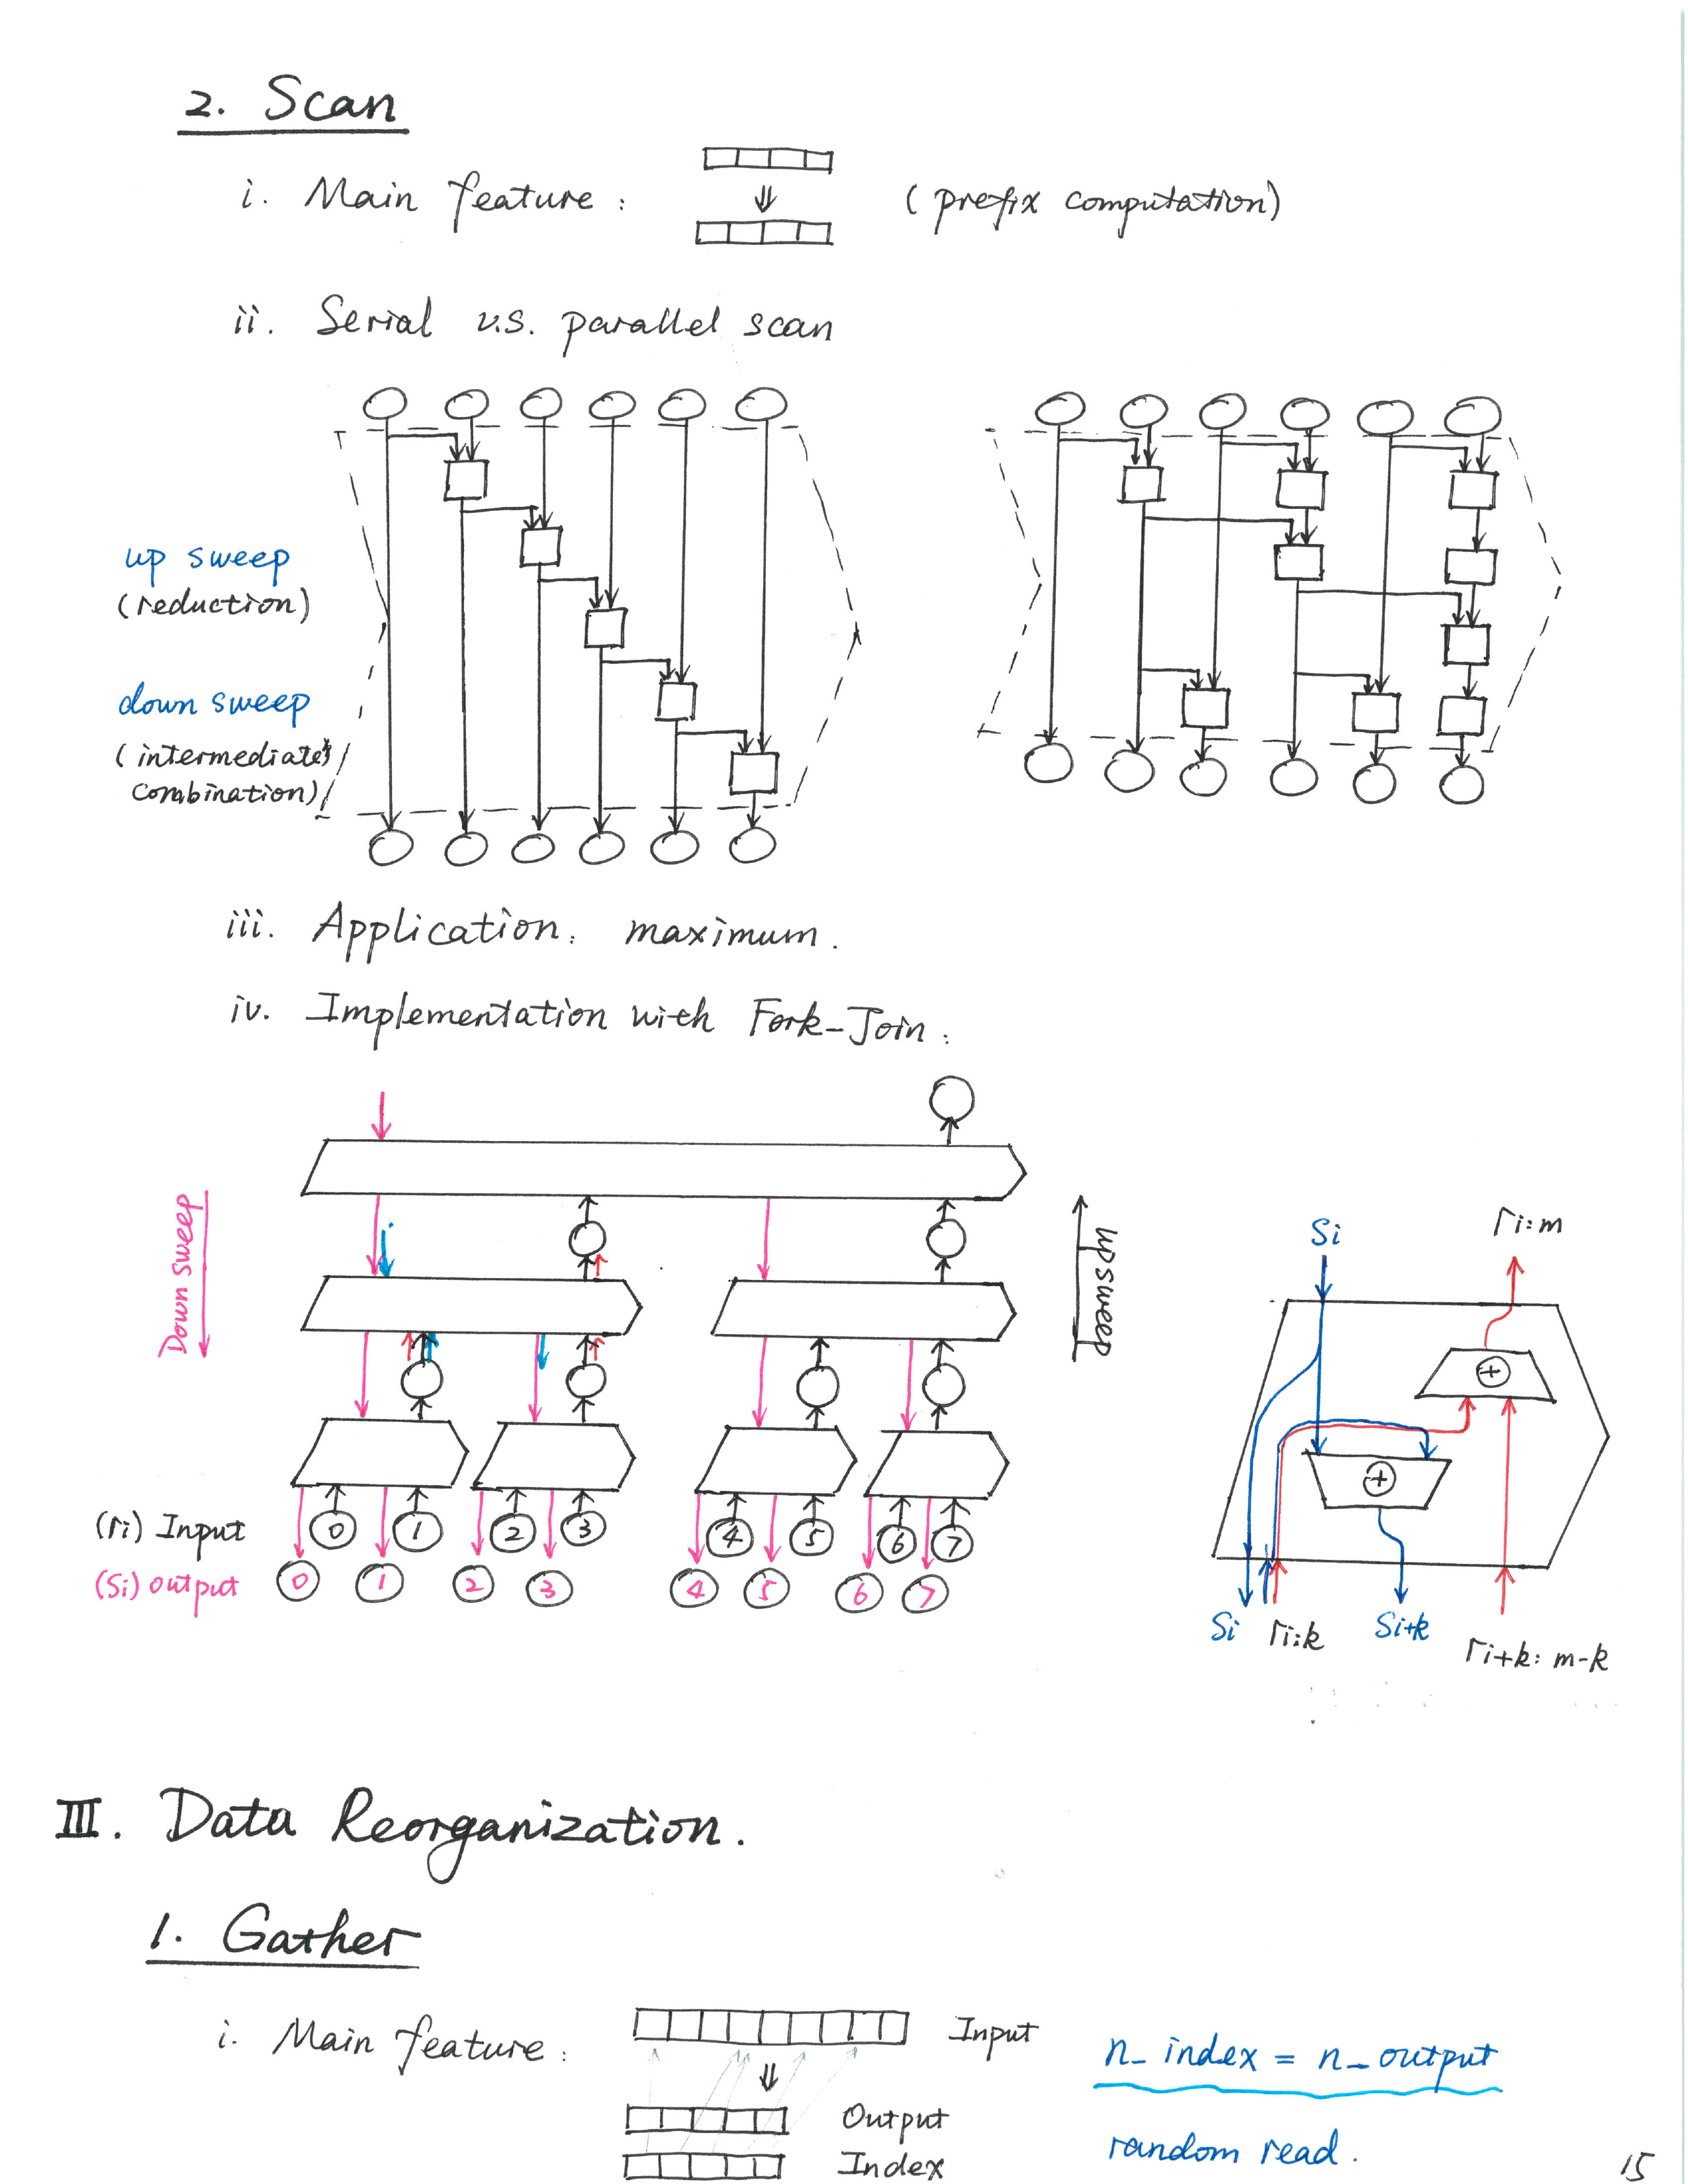 2. Scan
i. Main feature : (prefix computation)
ii. Serial v.s. parallel scan
up sweep
(reduction)
down sweep
(intermediates
combination)
iii. Application: maximum.
iv. Implementation with Fork-Join:
Down sweep
up sweep
Si
ri:m
+
+
(ri) Input
0 1 2 3 4 5 6 7
(Si) output
0 1 2 3 4 5 6 7
Si ri:k Si+k ri+k: m-k
III. Data Reorganization.
1. Gather
i. Main feature :
Input
Output
Index
n_index = n_output
random read.
15